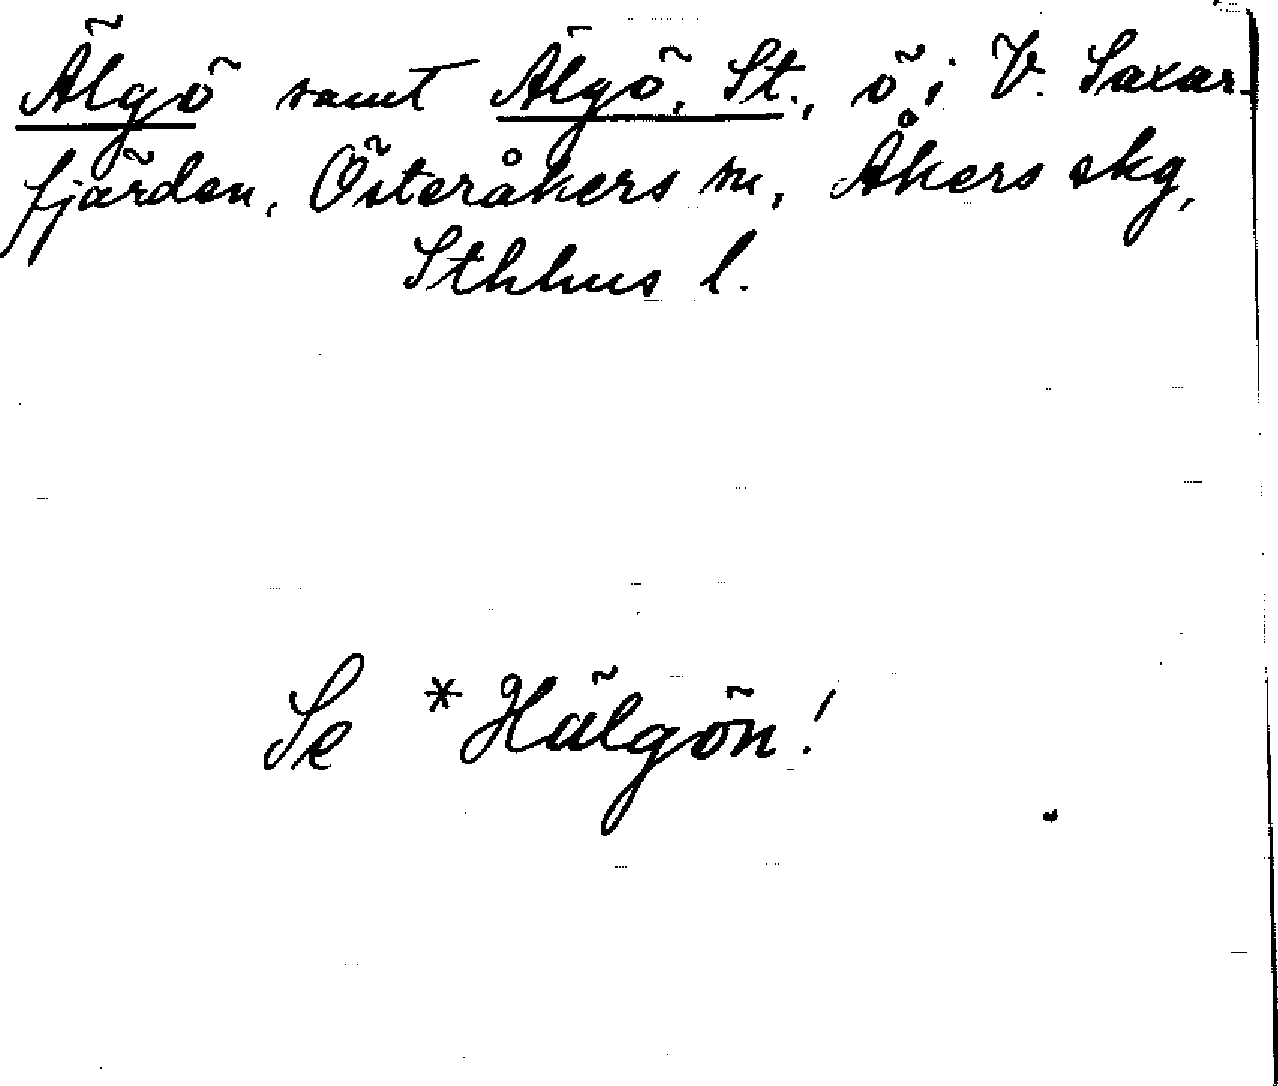 Älgö samt Älgö, St., ö i V. Saxar-
fjärden, Österåkers sn, Åkers skg,
Sthlms l.
Se *Hälgön!